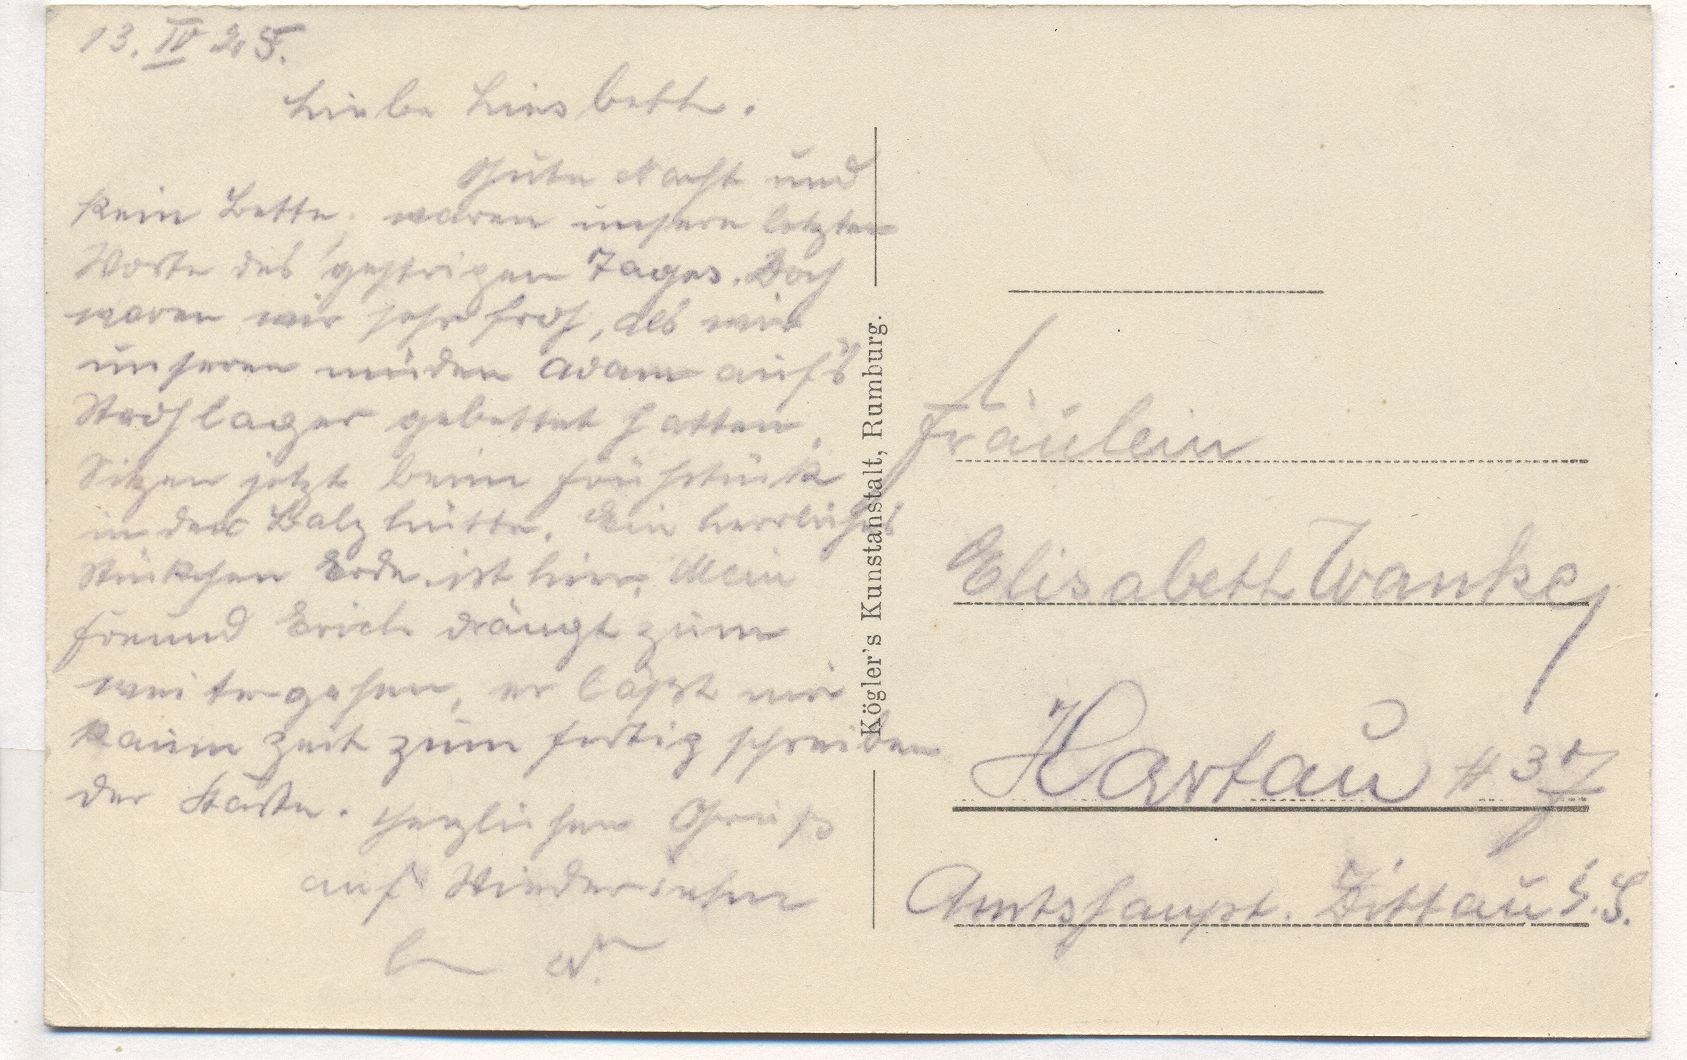 13. IV 25.
Liebe Liesbeth.
Gute Nacht und
kein Bette, waren unsere letzten
Worte des gestrigen Tages. Doch
waren wir sehr froh, als wir
unseren müden Adam auf's
Strohlager gebettet hatten.
Sitzen jetzt beim Frühstück
in der Balzhütte. Ein herrliches
Stückchen Erde ist hier. Mein
Freund Erich drängt zum
weitergehen, er läßt mir
kaum Zeit zum fertig schreiben
der Karte. Herzlichen Gruß
auf Wiedersehn
Kögler's Kunstanstalt, Rumburg.
Fräulein
Elisabeth Wanke,
Hartau # 37
Amtshaupt. Zittau i. S.